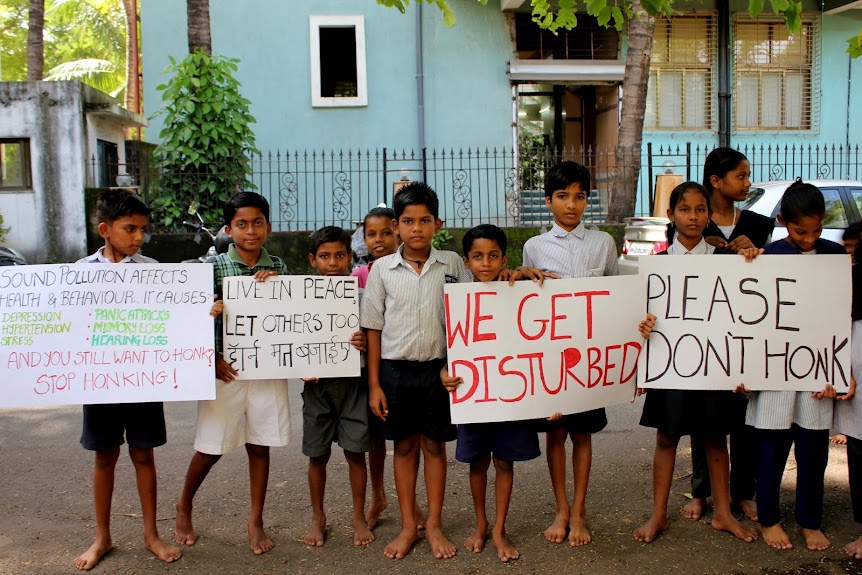 SOUND POLLUTION AFFECTS
HEALTH & BEHAVIOUR.. IT CAUSES:
DEPRESSION • PANIC ATTACKS
HYPERTENSION • MEMORY LOSS
STRESS • HEARING LOSS
AND YOU STILL WANT TO HONK?
STOP HONKING!
LIVE IN PEACE
LET OTHERS TOO
हॅार्न मत बजाईऐ
WE GET
DISTURBED
PLEASE
DON'T HONK